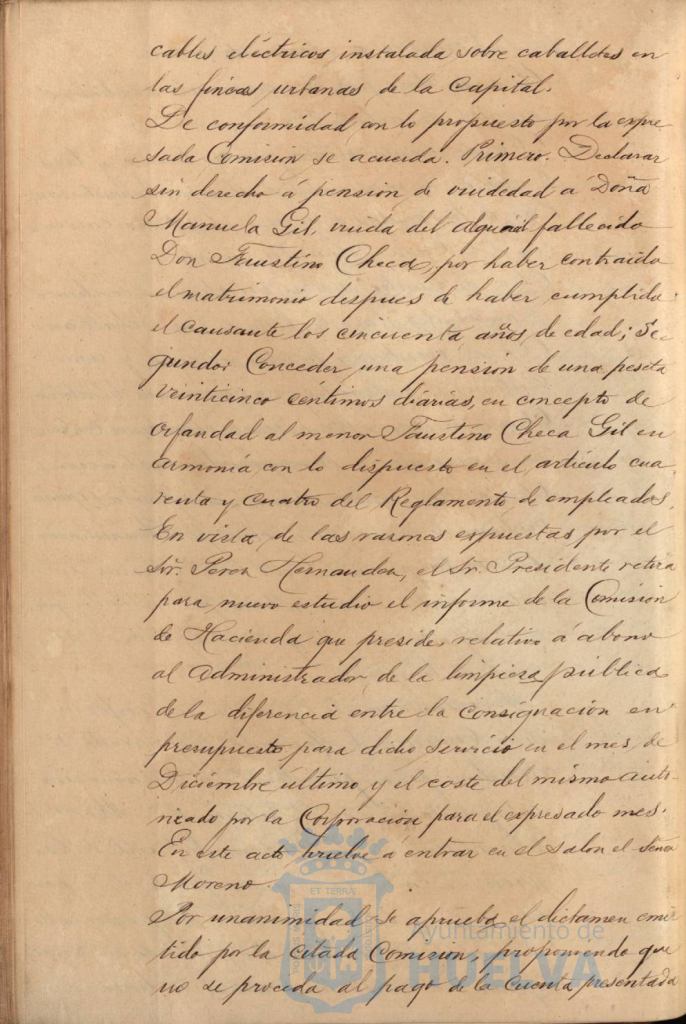 cables eléctricos instalada sobre caballetes en
las fincas urbanas de la Capital.
De conformidad con lo propuesto por la expre
sada Comisión se acuerda. Primero. Declarar
sin derecho á pensión de viudedad á Doña
Manuela Gil, viuda del alguacil fallecido
Don Faustino Checa, por haber contraido
el matrimonio despues de haber cumplido
el causante los cincuenta años de edad; Se-
gundo: Conceder una pensión de una peseta
veinticinco céntimos diarias, en concepto de
orfandad al menor Faustino Checa Gil en
armonía con lo dispuesto en el artículo cua
renta y cuatro del Reglamento de empleados.
En vista de las razones expuestas por el
Sr. Perez Hernandez, el Sr. Presidente retira
para nuevo estudio el informe de la Comisión
de Hacienda que preside, relativo á abono
al Administrador de la limpieza pública
de la diferencia entre la consignación en
presupuesto para dicho servicio en el mes de
Diciembre último y el coste del mismo auto-
rizado por la Corporación para el expresado mes.
En este acto vuelve á entrar en el salon el Señor
Moreno.
Por unanimidad se aprueba el dictamen emi
tido por la citada Comisión, proponiendo que
no se proceda al pago de la cuenta presentada
ET TERRÆ
Ayuntamiento de
HUELVA